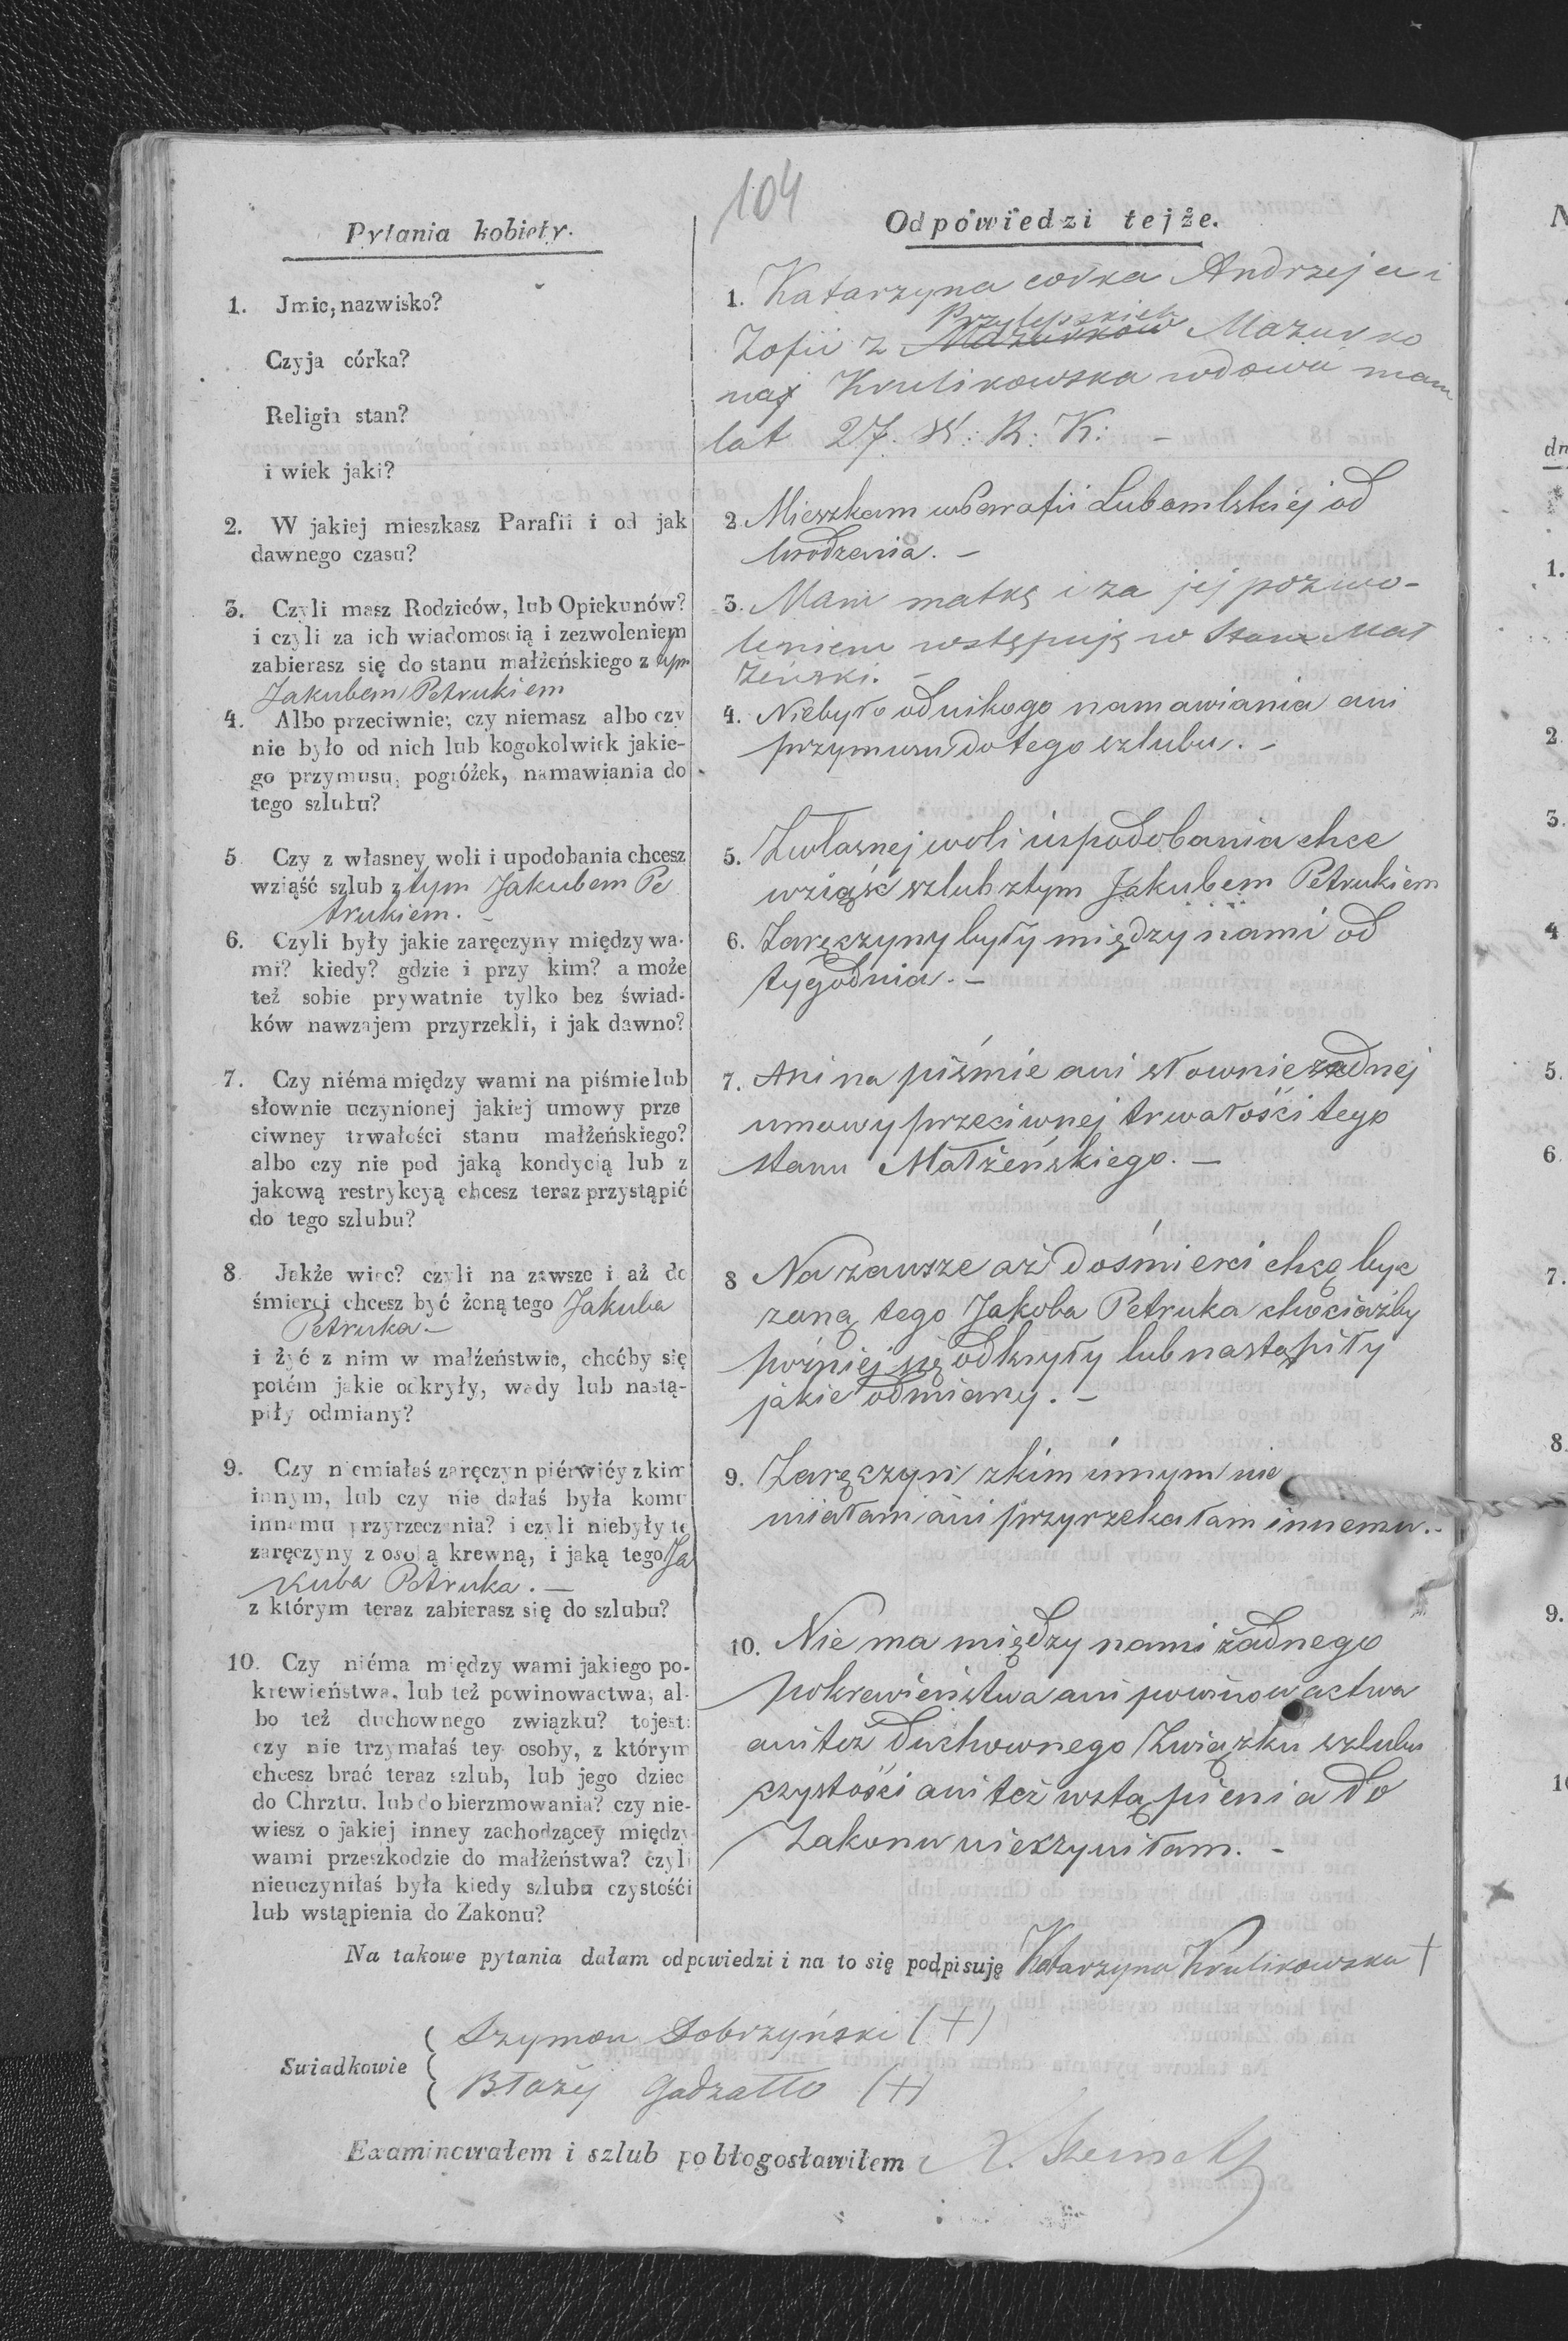 104
Pytania kobiéty.
1. Jmie, nazwisko?
Czyja córka?
Religia stan?
i wiek jaki?
2. W jakiej mieszkasz Parafii i od jak
dawnego czasu?
3. Czyli masz Rodziców, lub Opiekunów?
i czyli za ich wiadomością i zezwoleniem
zabierasz się do stanu małżeńskiego z tym
Jakubem Petrukiem
4. Albo przeciwnie; czy niemasz albo czy
nie było od nich lub kogokolwiek jakie-
go przymusu, pogróżek, namawiania do
tego szlubu?
5 Czy z własney woli i upodobania chcesz
wziąść szlub z tym Jakubem Pe
trukiem. –
6. Czyli były jakie zaręczyny między wa-
mi? kiedy? gdzie i przy kim? a może
też sobie prywatnie tylko bez świad-
ków nawzajem przyrzekli, i jak dawno?
7. Czy niéma między wami na piśmie lub
słownie uczynionej jakiej umowy prze
ciwney trwałości stanu małżeńskiego?
albo czy nie pod jaką kondycią lub z
jakową restrykcyą chcesz teraz przystąpić
do tego szlubu?
8 Jakże więc? czyli na zawsze i aż do
śmierci chcesz być żoną tego Jakuba
Petruka –
i żyć z nim w małżeństwie, choćby się
potém jakie odkryły, wady lub nastą-
piły odmiany?
9. Czy niemiałaś zaręczyn piérwiéy z kim
innym, lub czy nie dałaś była komu
innemu przyrzeczenia? i czyli niebyły te
zaręczyny z osobą krewną, i jaką tego Ja
kuba Petruka. –
z którym teraz zabierasz się do szlubu?
10. Czy niéma między wami jakiego po-
krewieństwa, lub też powinowactwa, al-
bo też duchownego związku? tojest:
czy nie trzymałaś tey osoby, z którym
chcesz brać teraz szlub, lub jego dziec
do Chrztu, lub do bierzmowania? czy nie-
wiesz o jakiej inney zachodzącey między
wami przeszkodzie do małżeństwa? czyli
nieuczyniłaś była kiedy szlubu czystości
lub wstąpienia do Zakonu?
Odpówiedzi tejże.
1. Katarzyna corka Andrzeja i
Przylepskich
Zofii z Mazurkow Mazurko
naf Krulikowska wdowa mam
lat 27. W: R: K: –
2 Mieszkam w Parafii Lubomlskiej od
Urodzenia. –
3. Mam matkę i za jej pozwo-
leniem wstępuję w Stan Mał
żeński. –
4. Niebyło od nikogo namawiania ani
przymusu do tego szlubu. –
5. Zwłasnej woli i upodobania chce
wziąść szlub ztym Jakubem Petrukiem
6. Zaręczyny były między nami od
tygodnia. –
7. Ani na piśmie ani słownie zadnej
umowy przeciwnej trwałości tego
stanu Małżeńskiego. –
8 Na zawsze aż do śmierci chcę byc
zoną tego Jakoba Petruka chociażby
poźniej się odkryły lub nastąpiły
jakie odmiany. –
9. Zaręczyn zkim innym nie
miałam ani przyrzekałam innemu. –
10. Nie ma między nami żadnego
pokrewieństwa ani powinowactwa
ani też duchownego Związku szlubu
czystości ani też wstąpienia do
Zakonu nieczyniłam. –
Na takowe pytania dałam odpowiedzi i na to się podpisuję Katarzyna Krulikowska +
Swiadkowie
Szymon Dobrzyński (+)
Błażej Gadzałło (+)
Examinowałem i szlub pobłogosławiłem X.
N
dn
1.
2
3.
4
5.
6.
7.
8.
9.
10